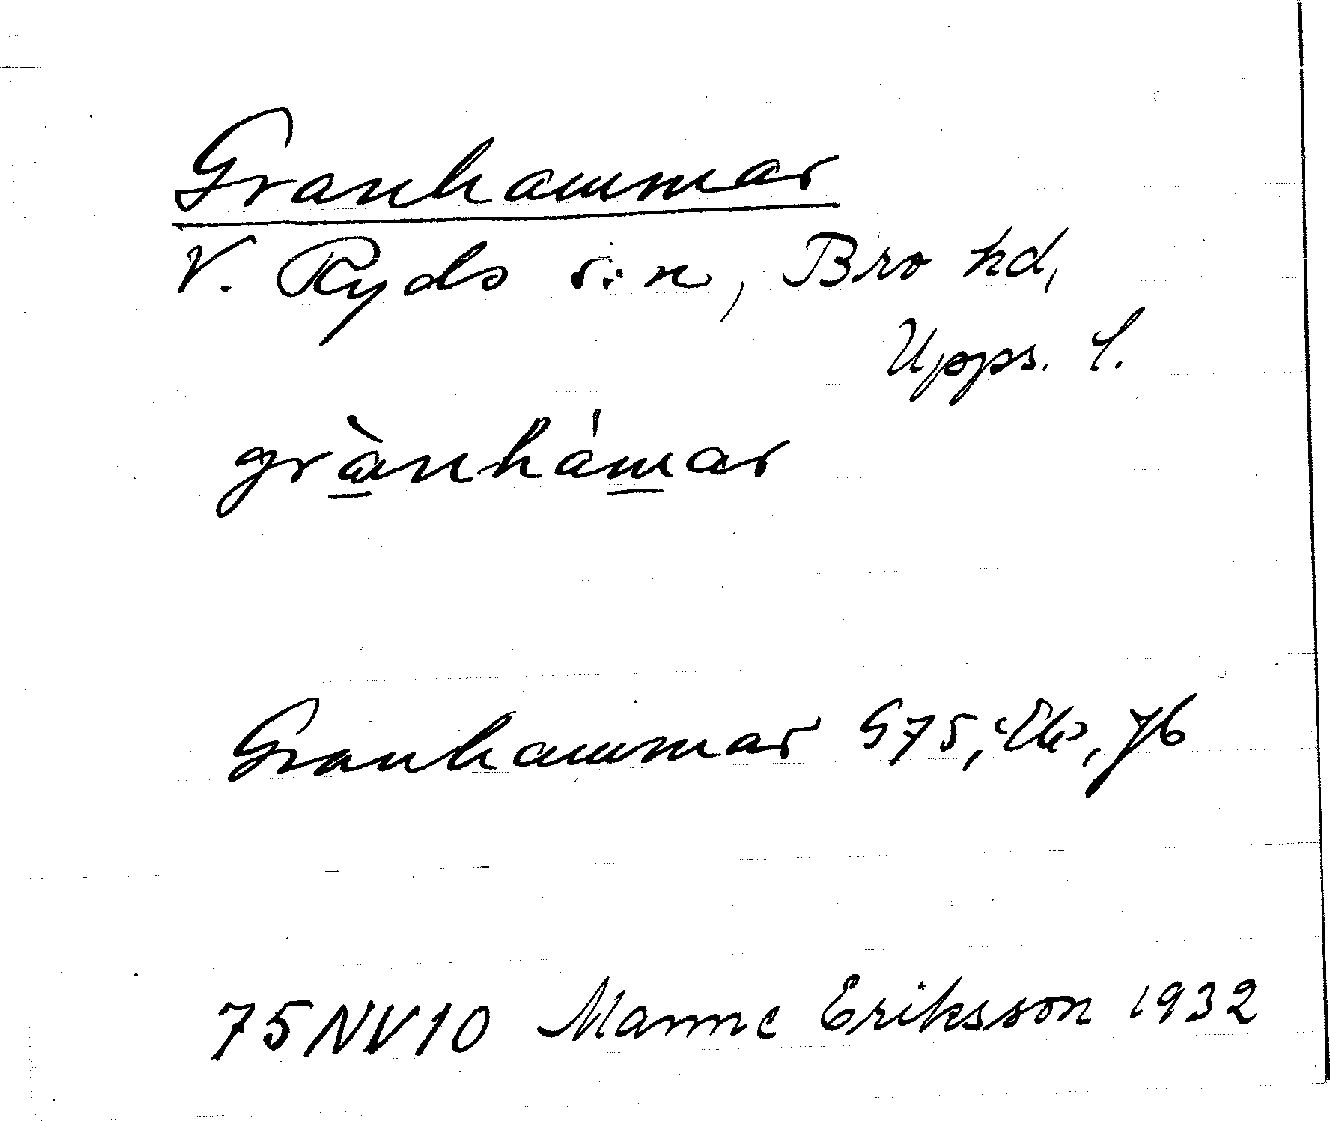 Granhammar
V. Ryds s:n, Bro hd,
Upps. l.
grànhámar
Granhammar G75, Ek, Jb
75NV10 Manne Eriksson 1932